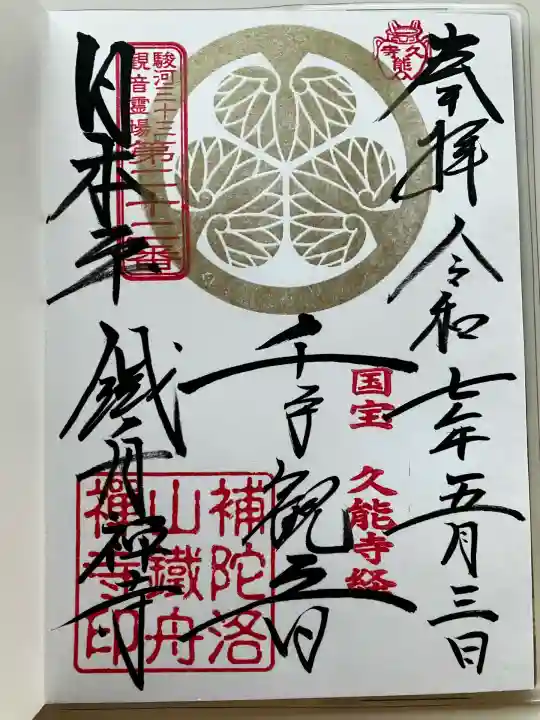 久能寺
奉拝 令和七年五月三日
国宝 久能寺経
千手観音
駿河三十三
観音霊場
第二十二番
日本平 鐵舟禅寺
補陀洛
山鐵舟
禅寺印